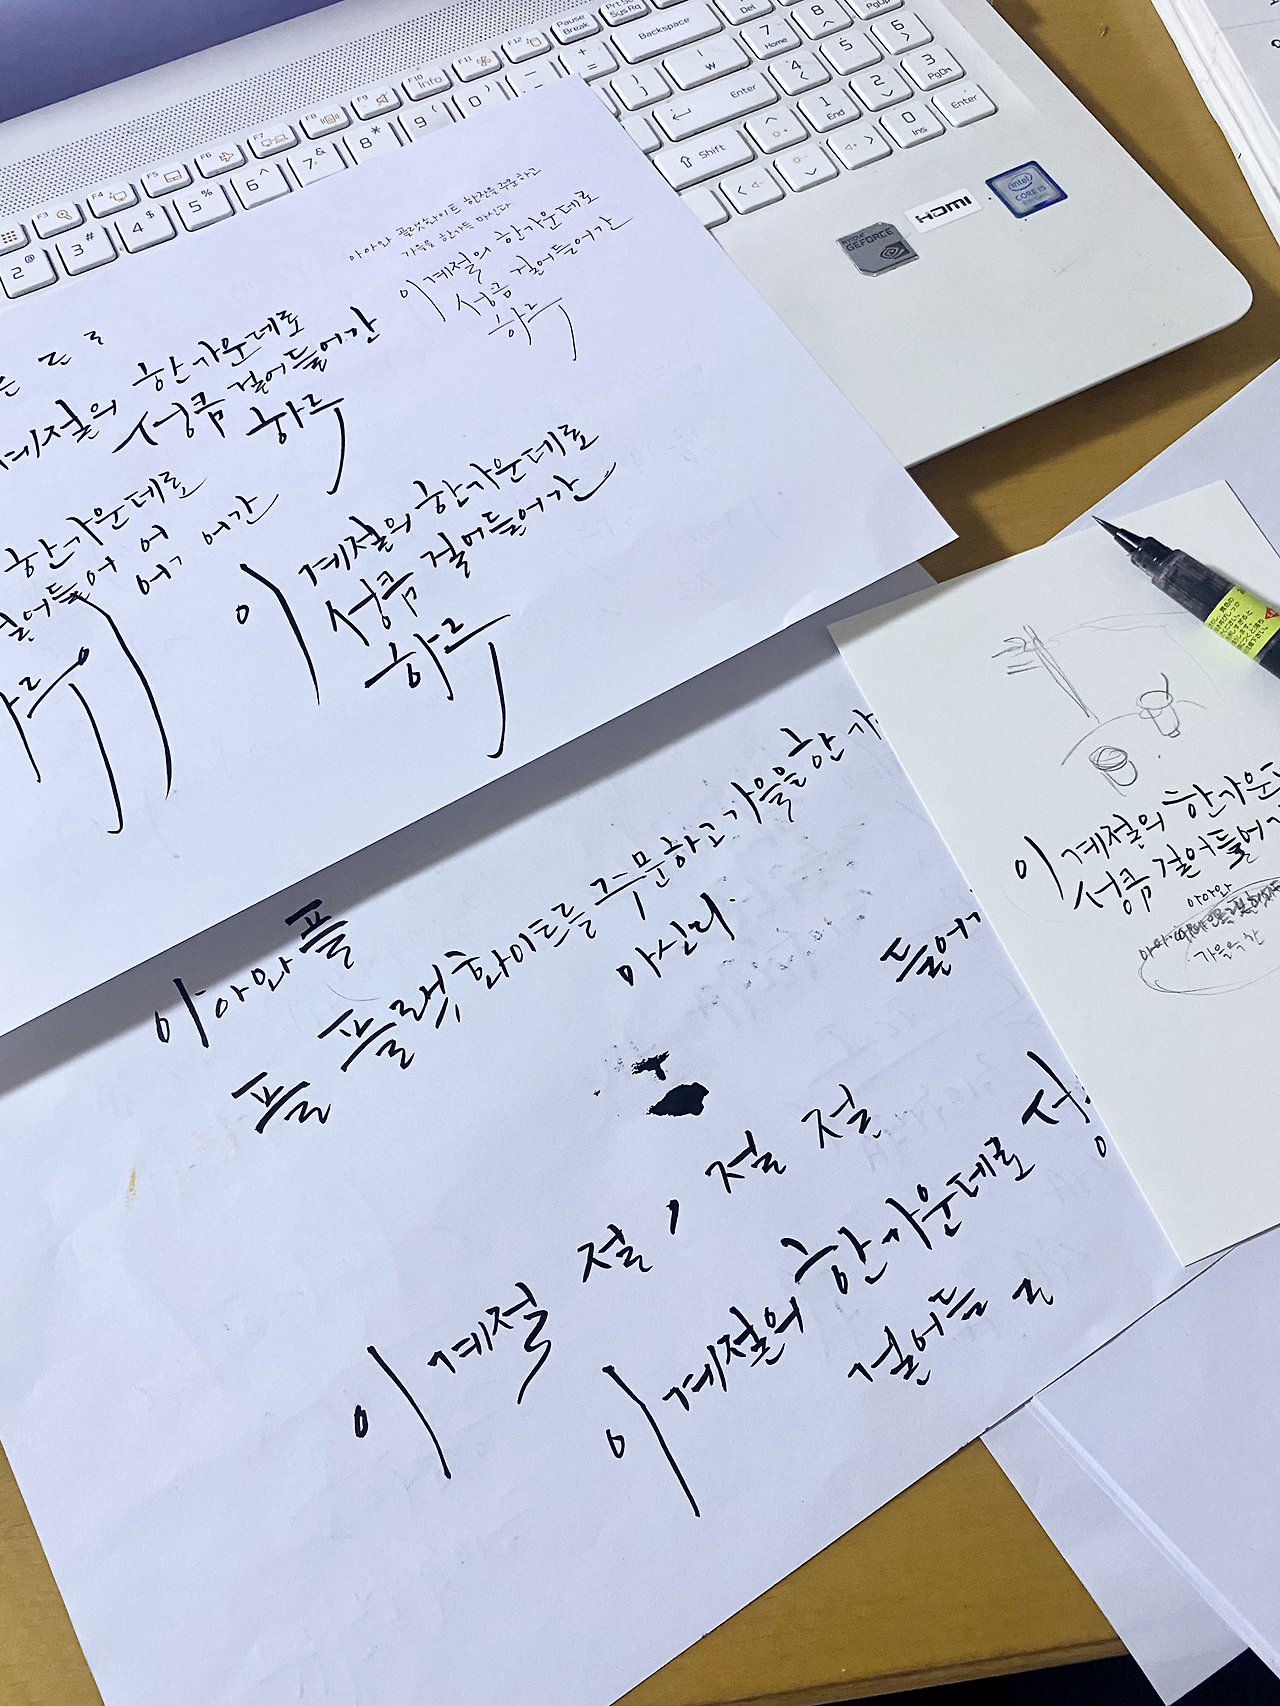 Pause Break
PrtSc SysRq
Del
Backspace
7 Home
8
5
4
Enter
1 End
2
3 PgDn
0 Ins
Enter
Shift
F3 F4 F5 F6 F7 F8 F9 F10 Info F11 F12
2 @ 3 # 4 $ 5 % 6 ^ 7 & 8 * 9 ( 0 )
intel CORE i5
HDMI
NVIDIA GEFORCE
아아와 플랫화이트 한잔을 주문하고
가을을 한가득 마신다
이 계절의 한가운데로
성큼 걸어들어간
하루
계절의 한가운데로
성큼 걸어들어간
하루
한가운데로
걸어들어 어
어간
이 계절의 한가운데로
성큼 걸어들어간
하루
아아와 플
플 플랫화이트를 주문하고 가을을 한가
마신다.
들어가
이 계절 절, 절 절
이 계절의 한가운데로 성
걸어들 ㄹ
이 계절의 한가운데
성큼 걸어들어가
아아와
가을을 한